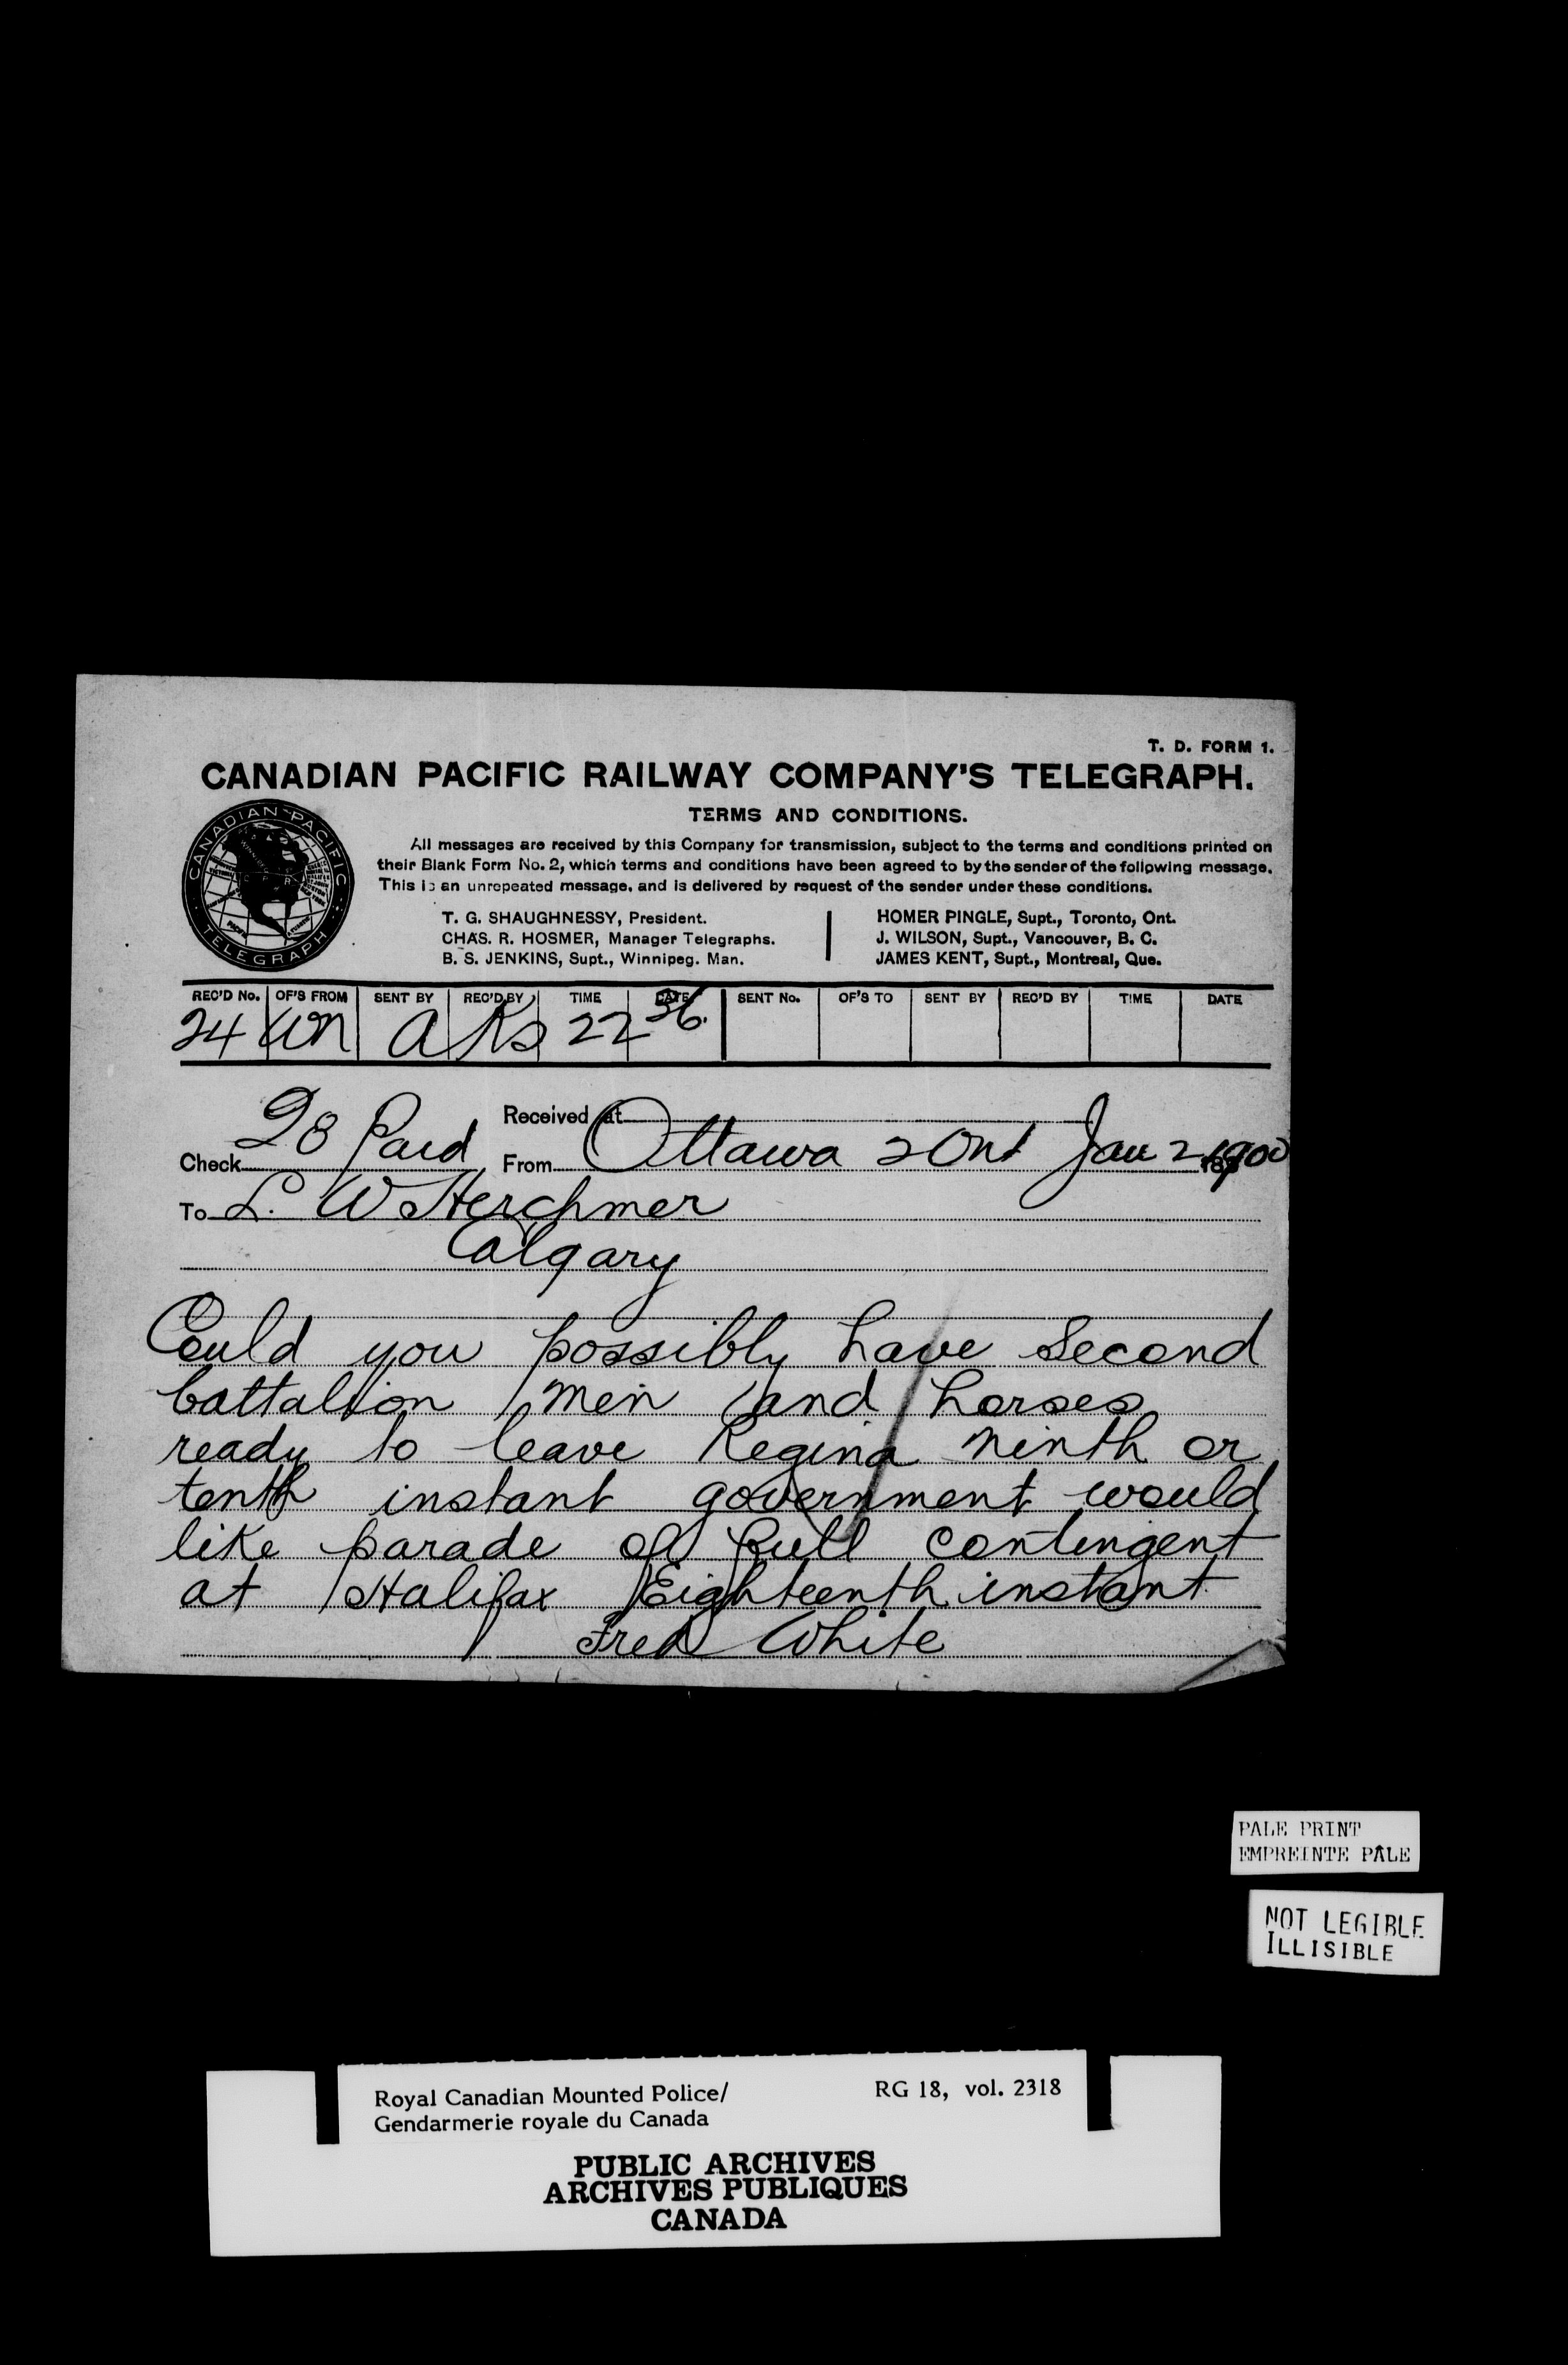 T. D. FORM 1.
CANADIAN PACIFIC RAILWAY COMPANY'S TELEGRAPH.
CANADIAN PACIFIC
TELEGRAPH
TERMS AND CONDITIONS.
All messages are received by this Company for transmission, subject to the terms and conditions printed on
their Blank Form No. 2, which terms and conditions have been agreed to by the sender of the following message.
This is an unrepeated message, and is delivered by request of the sender under these conditions.
T. G. SHAUGHNESSY, President.
CHAS. R. HOSMER, Manager Telegraphs.
B. S. JENKINS, Supt., Winnipeg. Man.
HOMER PINGLE, Supt., Toronto, Ont.
J. WILSON, Supt., Vancouver, B. C.
JAMES KENT, Supt., Montreal, Que.
REC'D No. OF'S FROM SENT BY REC'D BY TIME DATE SENT No. OF'S TO SENT BY REC'D BY TIME DATE
24 Wn a 22 36
Received at
Check 28 Paid From Ottawa Ont Jan 2 1900
To L. W Herchmer
Calgary
Could you possibly have Second
battalion men and horses
ready to leave Regina ninth or
tenth instant government would
like parade of full contingent
at Halifax Eighteenth instant
Fred White
PALE PRINT
EMPREINTE PÂLE
NOT LEGIBLE
ILLISIBLE
Royal Canadian Mounted Police/ RG 18, vol. 2318
Gendarmerie royale du Canada
PUBLIC ARCHIVES
ARCHIVES PUBLIQUES
CANADA